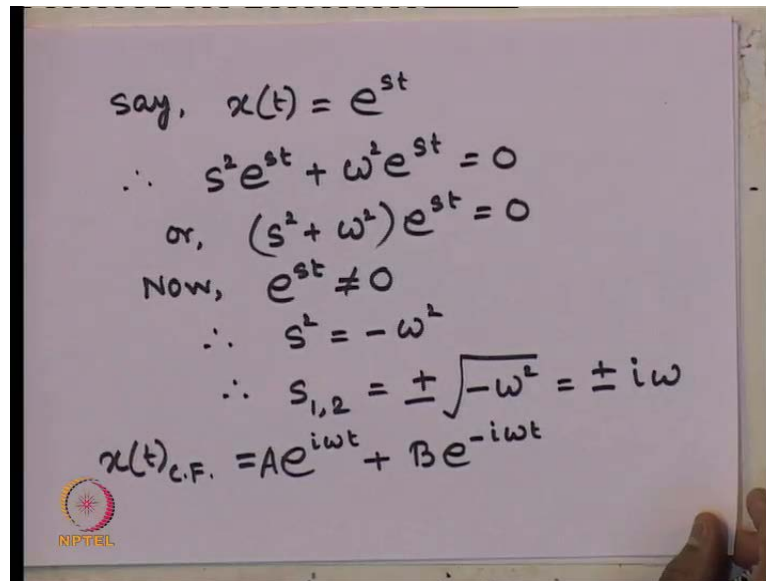 say, x(t) = e^{st}
∴ s²e^{st} + ω²e^{st} = 0
or, (s² + ω²)e^{st} = 0
Now, e^{st} ≠ 0
∴ s² = -ω²
∴ s_{1,2} = ± √(-ω²) = ± iω
x(t)_{C.F.} = Ae^{iωt} + Be^{-iωt}
NPTEL